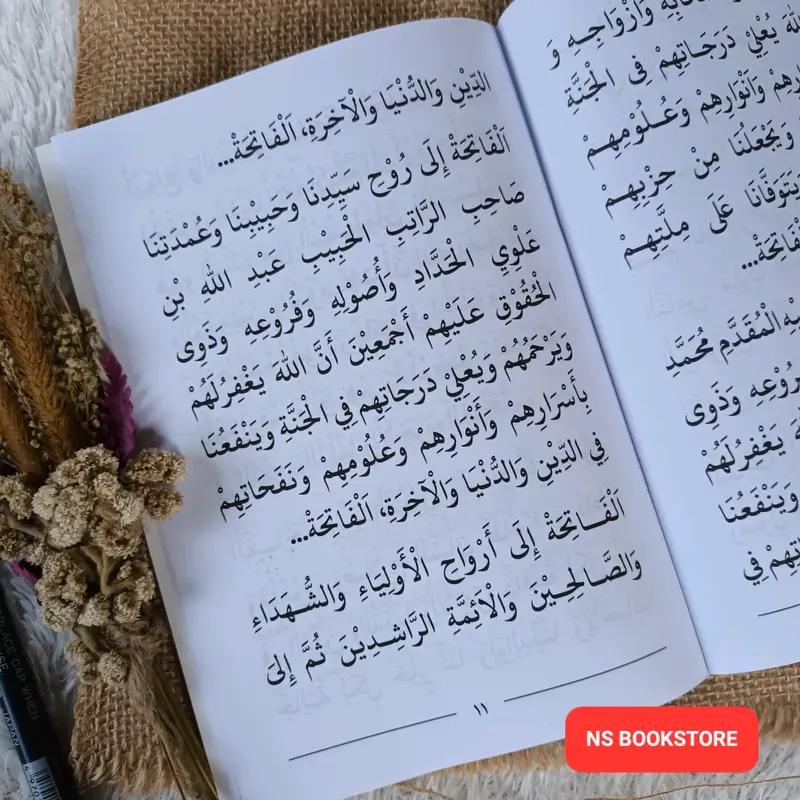 الدِّيْنِ وَالدُّنْيَا وَالْآخِرَةِ، اَلْفَاتِحَةْ...
اَلْفَاتِحَةْ إِلَى رُوْحِ سَيِّدِنَا وَحَبِيْبِنَا وَعُمْدَتِنَا
صَاحِبِ الرَّاتِبِ الْحَبِيْبِ عَبْدِ اللهِ بْنِ
عَلْوِي الْحَدَّادِ وَأُصُوْلِهِ وَفُرُوْعِهِ وَذَوِى
الْحُقُوْقِ عَلَيْهِمْ أَجْمَعِيْنَ أَنَّ اللهَ يَغْفِرُلَهُمْ
وَيَرْحَمُهُمْ وَيُعْلِيْ دَرَجَاتِهِمْ فِي الْجَنَّةِ وَيَنْفَعُنَا
بِأَسْرَارِهِمْ وَأَنْوَارِهِمْ وَعُلُوْمِهِمْ وَنَفَحَاتِهِمْ
فِي الدِّيْنِ وَالدُّنْيَا وَالْآخِرَةِ، اَلْفَاتِحَةْ...
اَلْفَاتِحَةْ إِلَى أَرْوَاحِ الْأَوْلِيَاءِ وَالشُّهَدَاءِ
وَالصَّالِحِيْنَ وَالْأَئِمَّةِ الرَّاشِدِيْنَ ثُمَّ إِلىَ
١١
وَأَزْوَاجِهِ وَ
يُعْلِيْ دَرَجَاتِهِمْ فِى الْجَنَّةِ
وَأَنْوَارِهِمْ وَعُلُوْمِهِمْ
وَيَجْعَلُنَا مِنْ حِزْبِهِمْ
يَتَوَفَّانَا عَلَى مِلَّتِهِمْ
الْمُقَدَّمِ مُحَمَّدِ
وَذَوِى
يَغْفِرُلَهُمْ
وَيَنْفَعُنَا
فِي
NS BOOKSTORE
PLACE CAP WHEN
JAPAN